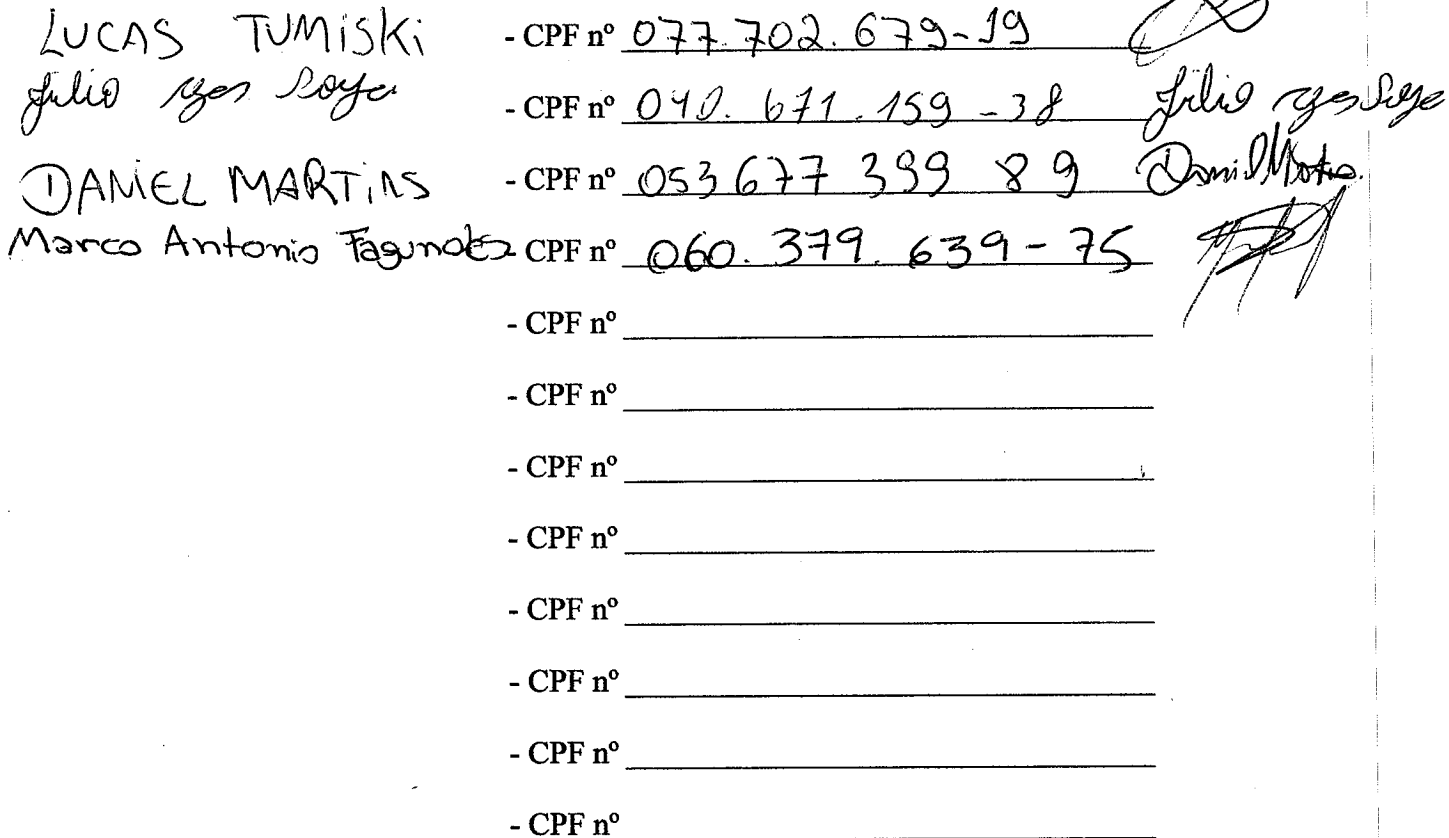 LUCAS TUMISKI - CPF nº 077.702.679-19
Julio - CPF nº 040.671.159-38 Julio
DANIEL MARTINS - CPF nº 053 677 399 89 Daniel
Marco Antonio Fagundes - CPF nº 060.379.639-75
- CPF nº
- CPF nº
- CPF nº
- CPF nº
- CPF nº
- CPF nº
- CPF nº
- CPF nº